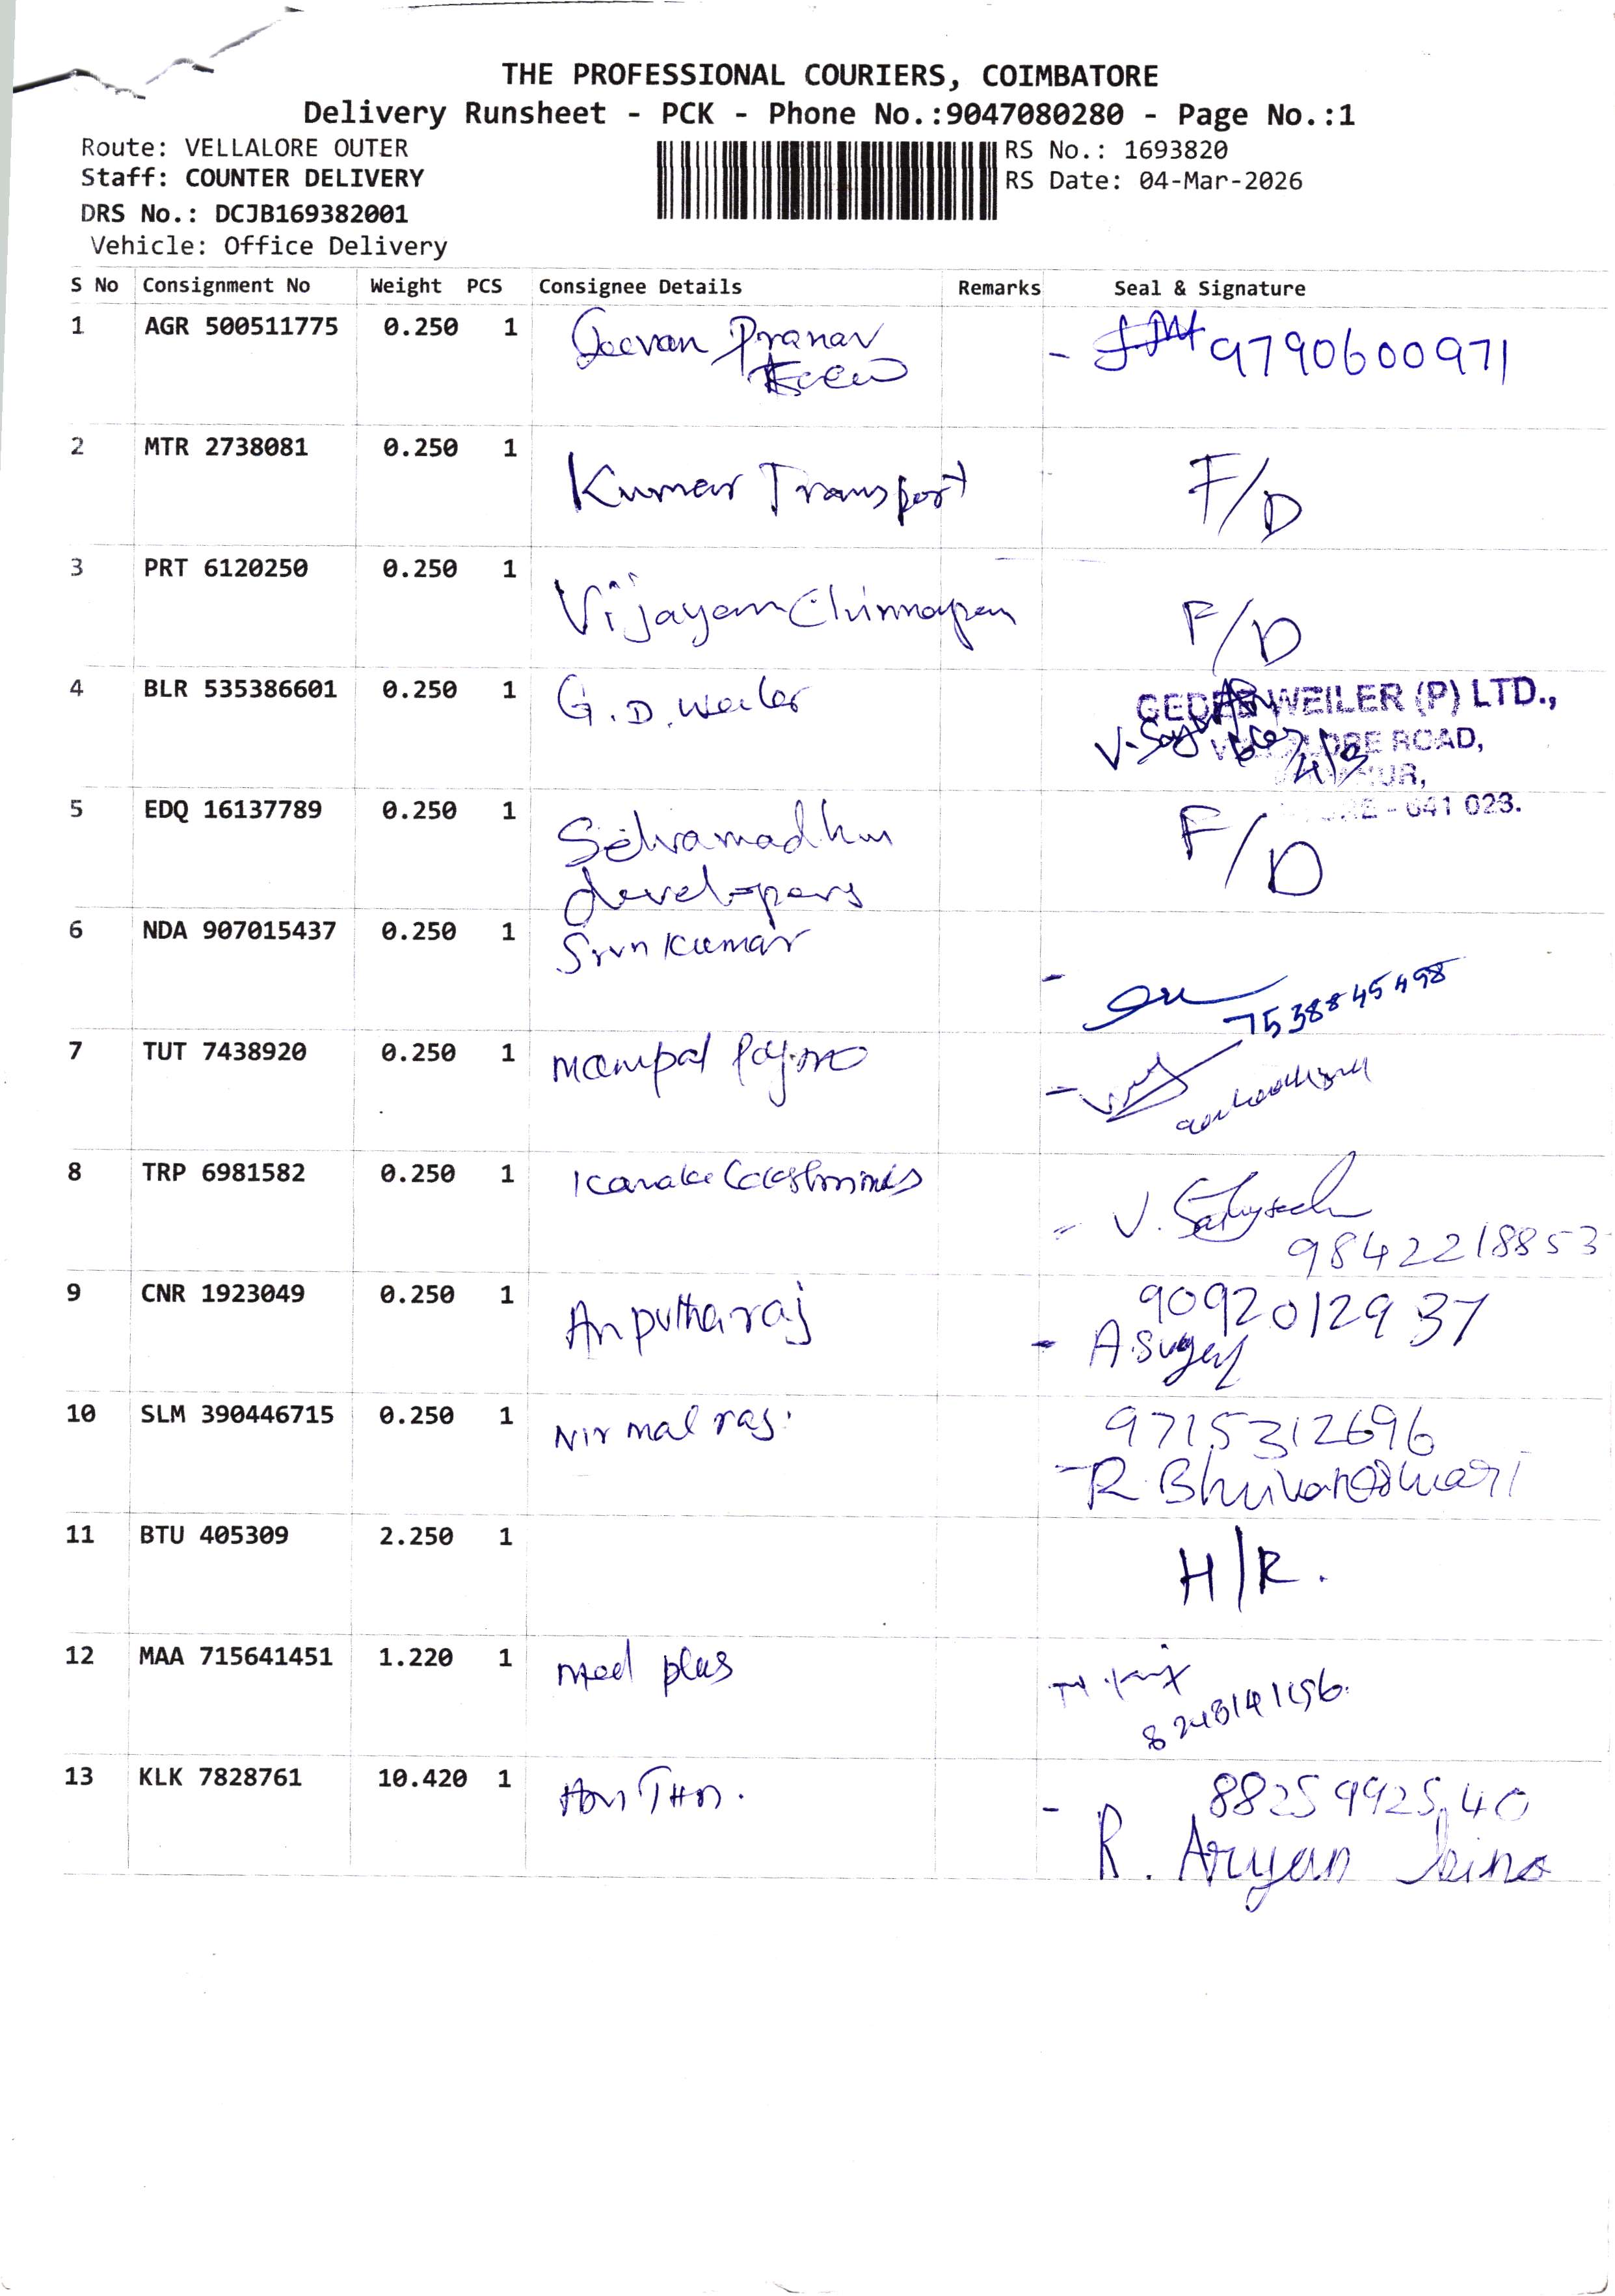 THE PROFESSIONAL COURIERS, COIMBATORE
Delivery Runsheet - PCK - Phone No.:9047080280 - Page No.:1
Route: VELLALORE OUTER
RS No.: 1693820
Staff: COUNTER DELIVERY
RS Date: 04-Mar-2026
DRS No.: DCJB169382001
Vehicle: Office Delivery
S No Consignment No Weight PCS Consignee Details Remarks Seal & Signature
1 AGR 500511775 0.250 1 Jeevan Pranav
9790600971
2 MTR 2738081 0.250 1
Kumar Transport F/D
3 PRT 6120250 0.250 1
Vijayan Chinnapan F/D
4 BLR 535386601 0.250 1 G.D. Weiler
WEILER (P) LTD.,
ROAD,
- 641 023.
5 EDQ 16137789 0.250 1
Selvamadhu F/D
developers
6 NDA 907015437 0.250 1
Kumar
7538845498
7 TUT 7438920 0.250 1
8 TRP 6981582 0.250 1
V.
9842218853
9 CNR 1923049 0.250 1 Anputharaj 9092012937
10 SLM 390446715 0.250 1 Nirmal raj. 9715312696
R. Bhuvaneshwari
11 BTU 405309 2.250 1
H/R.
12 MAA 715641451 1.220 1 Med plus
13 KLK 7828761 10.420 1 8825992540
R. Aryan